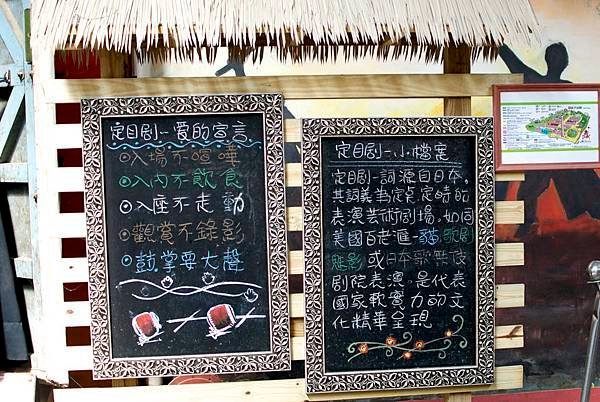 定目劇－愛的宣言
⊙入場不喧嘩
⊙入內不飲食
⊙入座不走動
⊙觀賞不錄影
⊙鼓掌要大聲
定目劇－小檔案
定目劇一詞源自日本,
其詞義為定點、定時的
表演藝術劇場,如同
美國百老滙－貓、歌劇
魅影 或日本歌舞伎
劇院表演,是代表
國家軟實力的文
化精華呈現